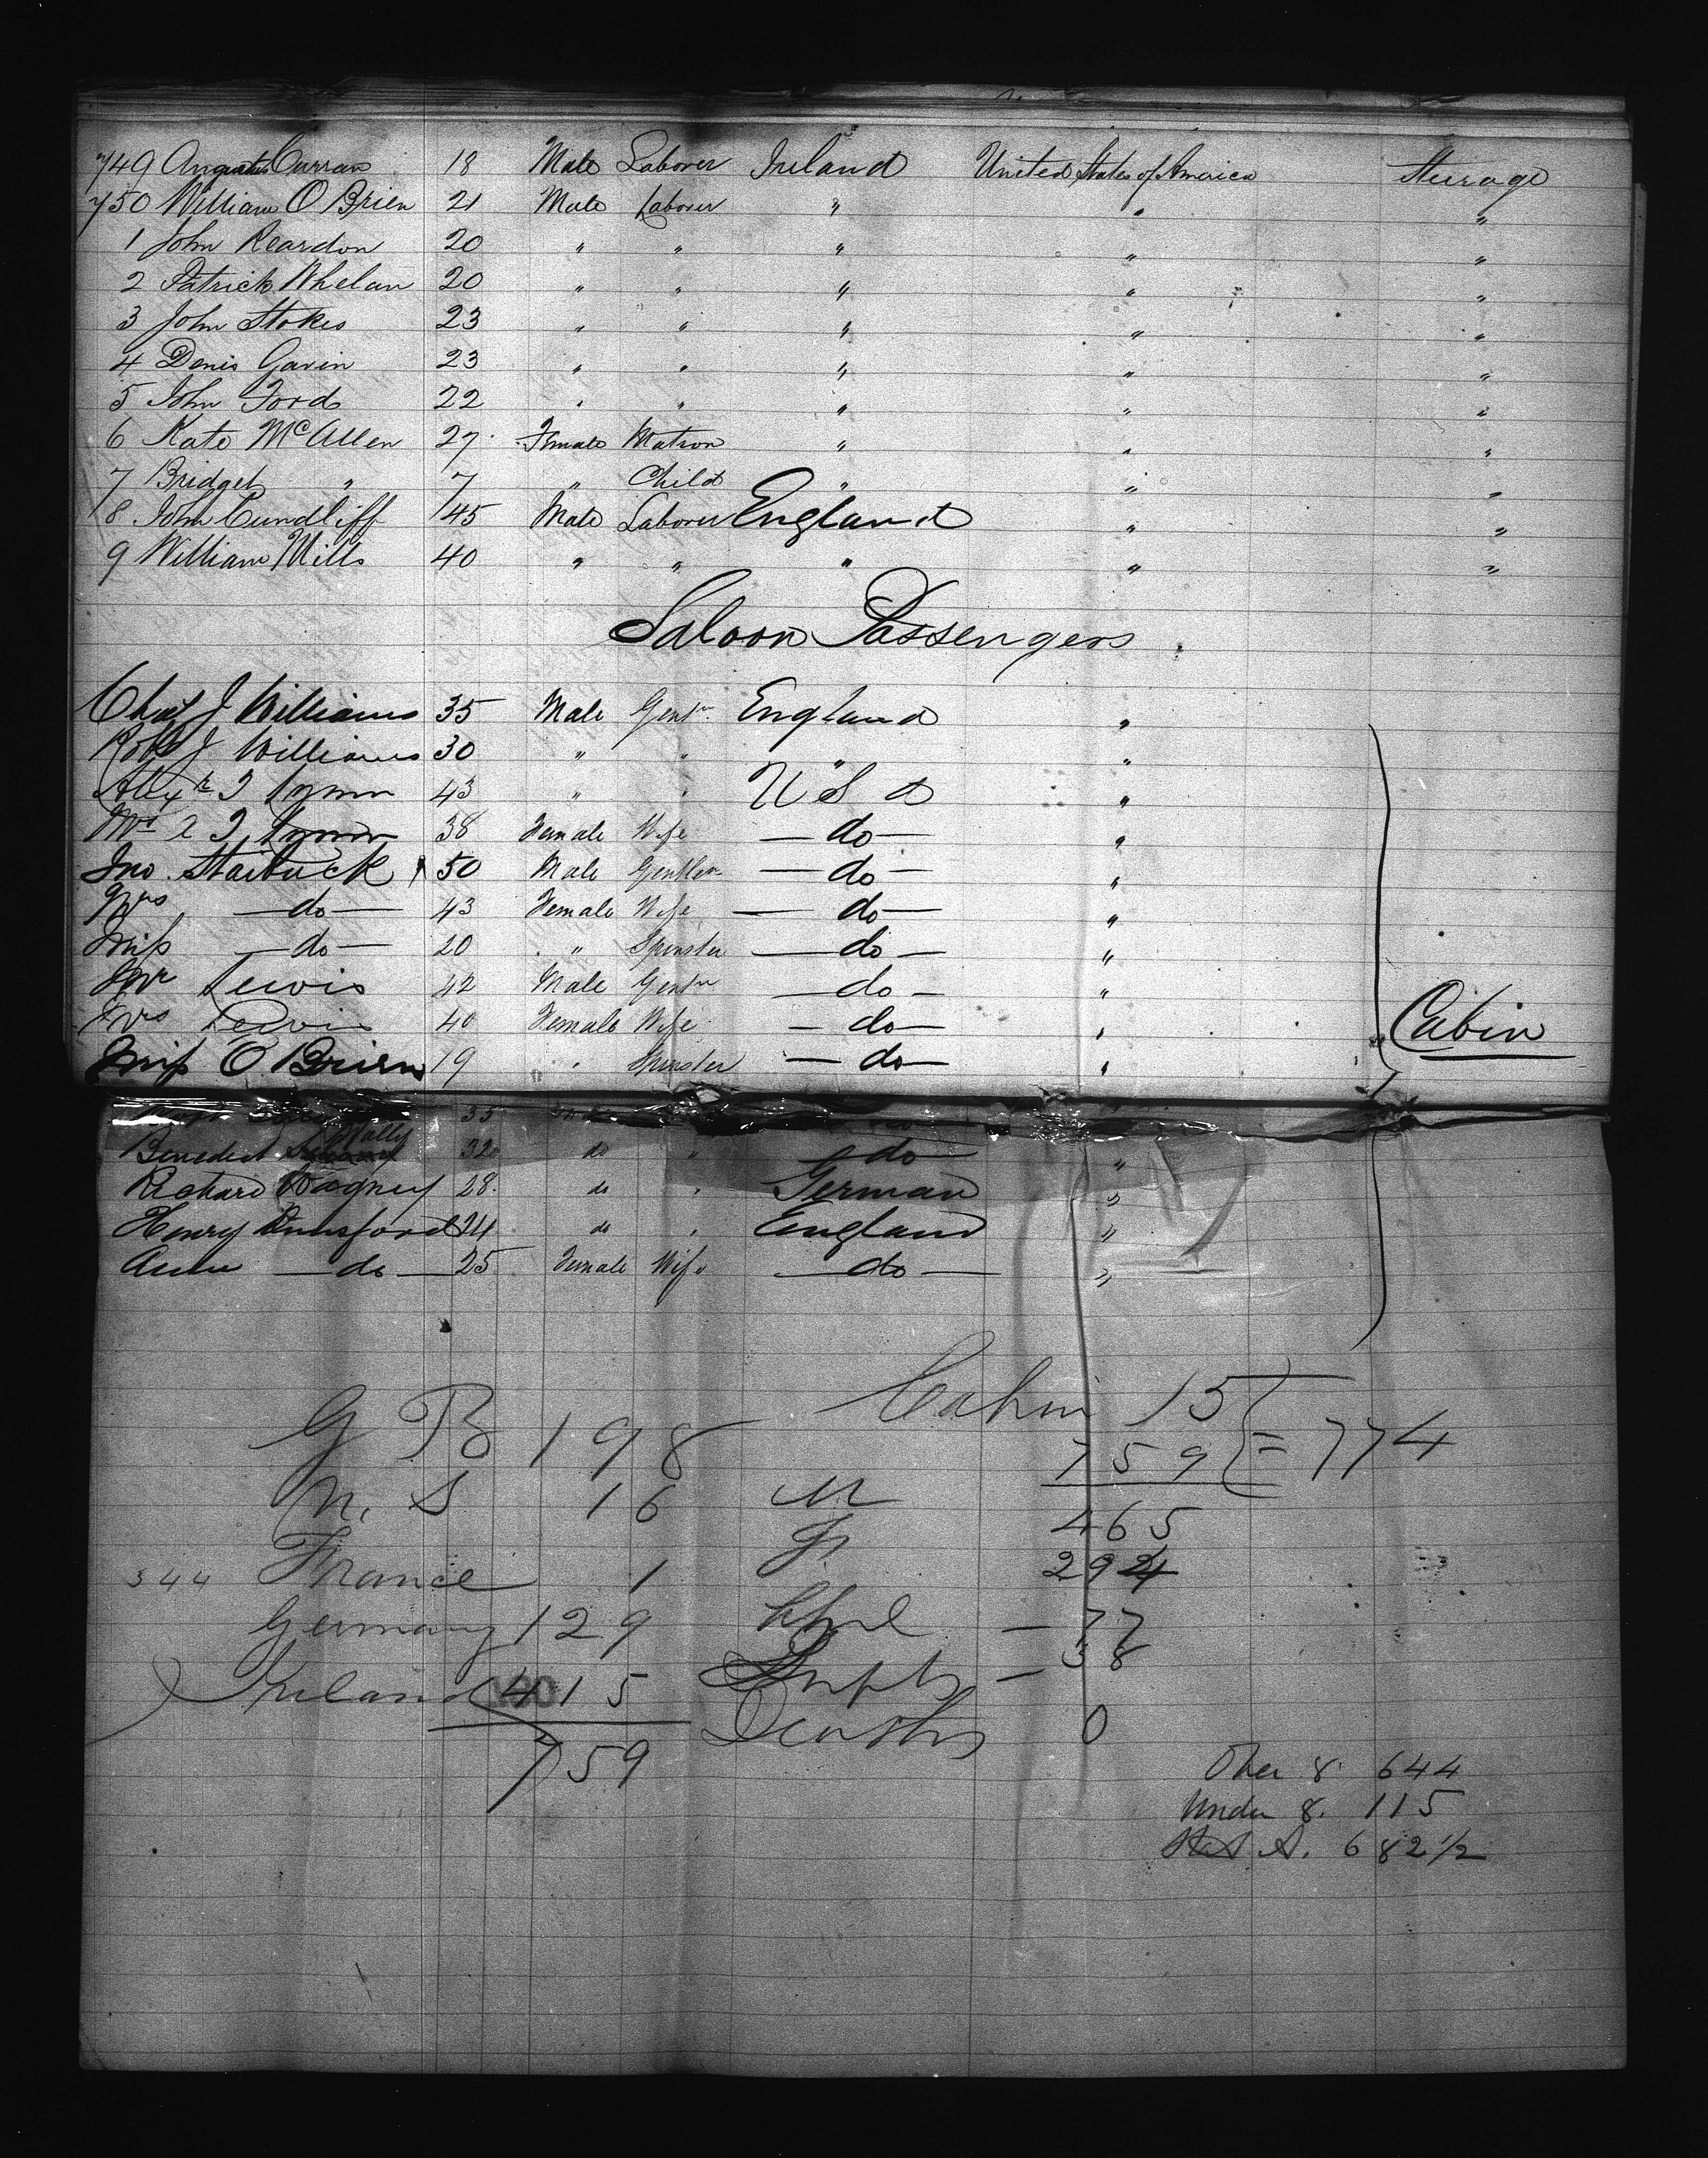 749 Augustus Curran 18 Male Laborer Ireland United States of America Steerage
750 William O Brien 21 Male Laborer " " "
1 John Reardon 20 " " " " "
2 Patrick Whelan 20 " " " " "
3 John Stokes 23 " " " " "
4 Denis Gavin 23 " " " " "
5 John Ford 22 " " " " "
6 Kate McAllen 27 Female Matron " " "
7 Bridget " 7 " Child " " "
8 John Cundliff 45 Male Laborer England " "
9 William Mills 40 " " " " "
Saloon Passengers
Chas J Williams 35 Male Gentn England "
Robt J Williams 30 " " " "
43 " " U S A "
Mrs 38 Female Wife — do — "
Jno. Starbuck 50 Male Gentlen — do — "
Mrs — do — 43 Female Wife — do — "
Miss — do — 20 " Spinster — do — "
Mr Lewis 42 Male Gentn — do — "
Mrs Lewis 40 Female Wife — do — " Cabin
Miss O Brien 19 " Spinster — do — "
35
Benedict 32 do " do "
Richard Wagney 28 do " German "
Henry 24 do " England "
— do — 25 Female Wife — do — "
Cabin 15
G B 198 759 = 774
16 M 465
344 France 1 F 294
Germany 129 Chil — 77
Ireland 415 Infts — 38
759 Deaths 0
Over 8 644
Under 8. 115
A. 682 1/2